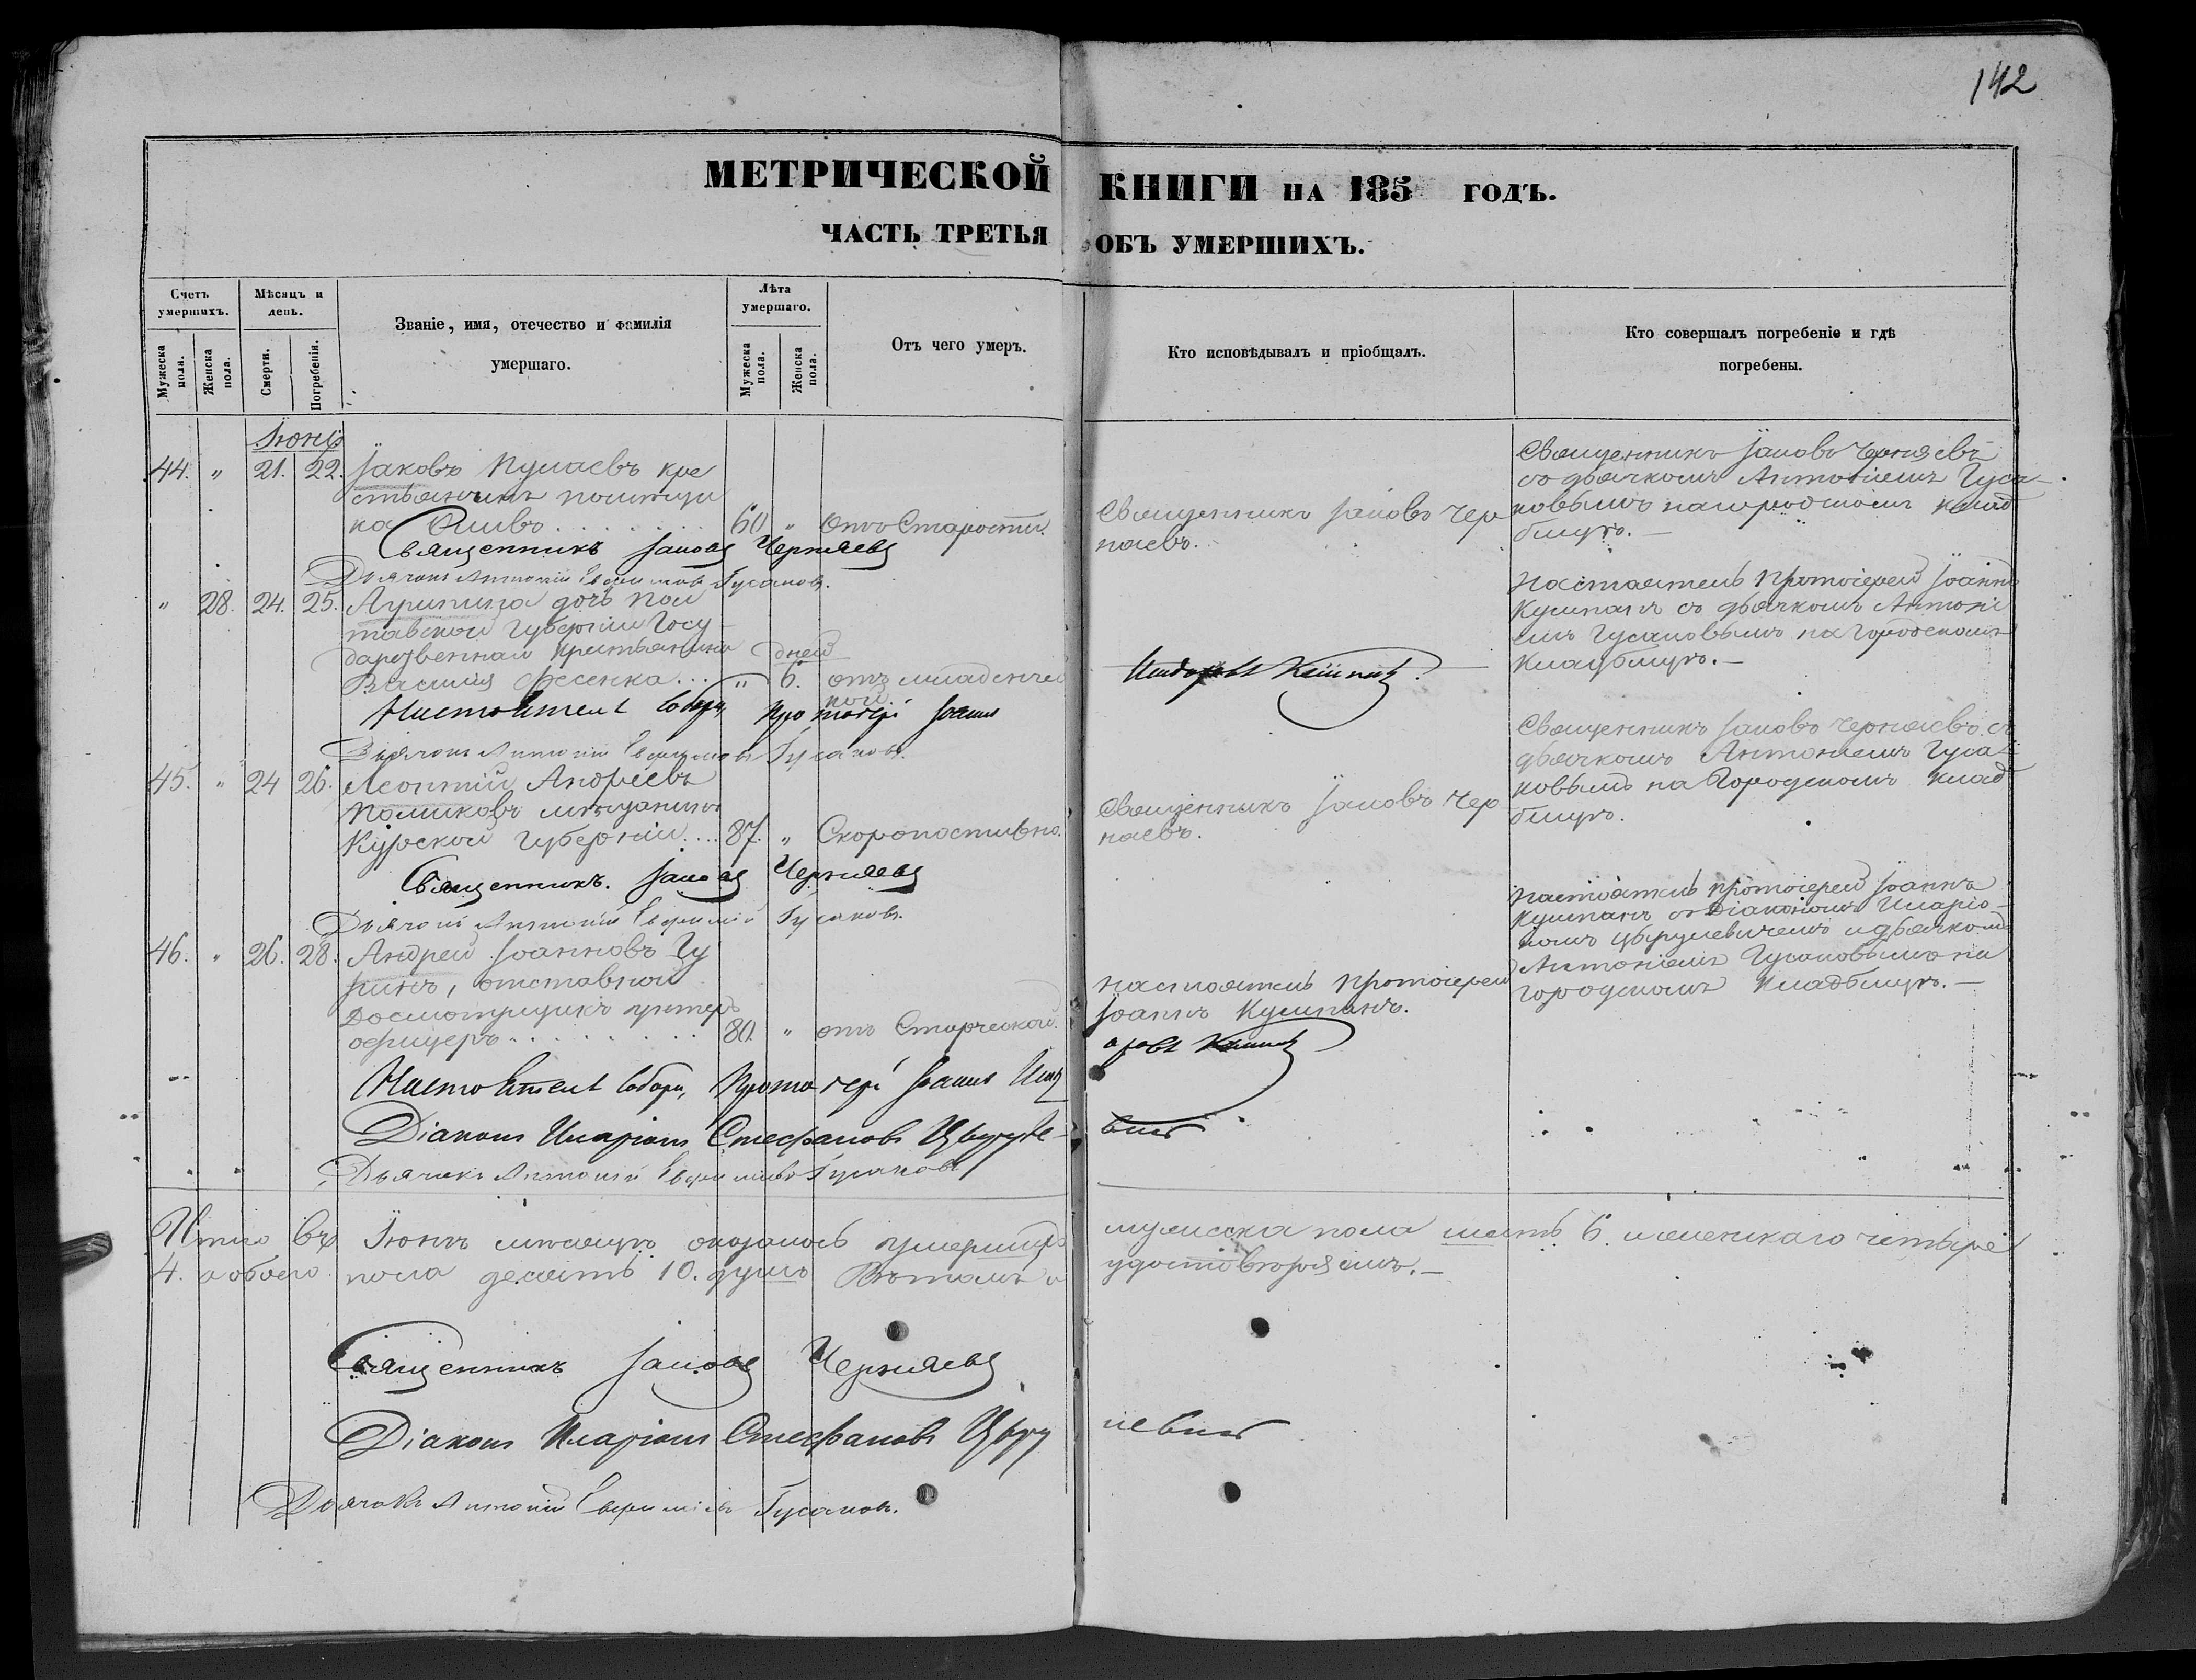 142
МЕТРИЧЕСКОЙ КНИГИ НА 185 ГОДЪ.
ЧАСТЬ ТРЕТЬЯ ОБЪ УМЕРШИХЪ.
Счетъ умершихъ.
Мужеска пола.
Женска пола.
Мѣсяцъ и день.
Смерти.
Погребенія.
Званіе, имя, отечество и фамилія умершаго.
Лѣта умершаго.
Мужеска пола.
Женска пола.
Отъ чего умеръ.
Кто исповѣдывалъ и пріобщалъ.
Кто совершалъ погребеніе и гдѣ погребены.
44. " 21. 22. Іаковъ кре
стьянинъ помѣщи
ка 60 " отъ Старости.
Священникъ Іаковъ Чер
няевъ.
Священникъ Іаковъ Черняевъ
съ дьячкомъ Антоніемъ Гуса
ковымъ на городскомъ клад
бищѣ.
Священникъ Іаковъ Черняевъ
Дьячокъ Антоній Гусаковъ.
" 28. 24. 25. дочь Пол
тавской Губерніи Госу
дарственнаго крестьянина дней
Василія Фесенка... " 6. отъ младенчес
кой.
Настоятель Протоіерей Іоаннъ
съ дьячкомъ Антоні
емъ Гусаковымъ на Городскомъ
кладбищѣ.
Настоятель Собора, Протоіерей Іоаннъ
Дьячокъ Антоній Гусаковъ.
45. " 24 26. Леонтій Андреевъ
мѣщанинъ
Курской Губерніи.... 87. " Скоропостижно.
Священникъ Іаковъ Чер
няевъ.
Священникъ Іаковъ Черняевъ съ
дьячкомъ Антоніемъ Гуса
ковымъ на Городскомъ клад
бищѣ.
Священникъ. Іаковъ Черняевъ
Дьячокъ Антоній Гусаковъ.
46. " 26. 28. Андрей Іоанновъ
отставной
Досмотрщикъ унтеръ
офицеръ 80. " отъ Старческой.
Настоятель Протоіерей
Іоаннъ
Настоятель Протоіерей Іоаннъ
съ Діакономъ Иларіо
номъ и дьячкомъ
Антоніемъ Гусаковымъ на
городскомъ кладбищѣ.
Настоятель Собора, Протоіерей Іоаннъ
Діаконъ Иларіонъ Стефановъ
Дьячокъ Антоній Гусаковъ
Итого въ Іюнѣ мѣсяцѣ оказалось умершихъ мужеска пола шесть 6. и женскаго четыре
4. а обоего пола десять 10. душъ Въ томъ и удостовѣряемъ.
Священникъ Іаковъ Черняевъ
Діаконъ Иларіонъ Стефановъ
Дьячокъ Антоній Гусаковъ.